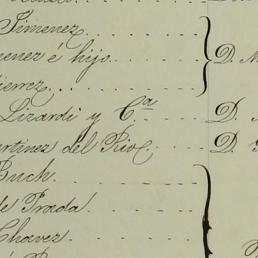 Jimenez
menez é hijo D.
ierrez
Lizardi y Cª D.
artinez del Rio D.
Buch
de Prada
Chavez